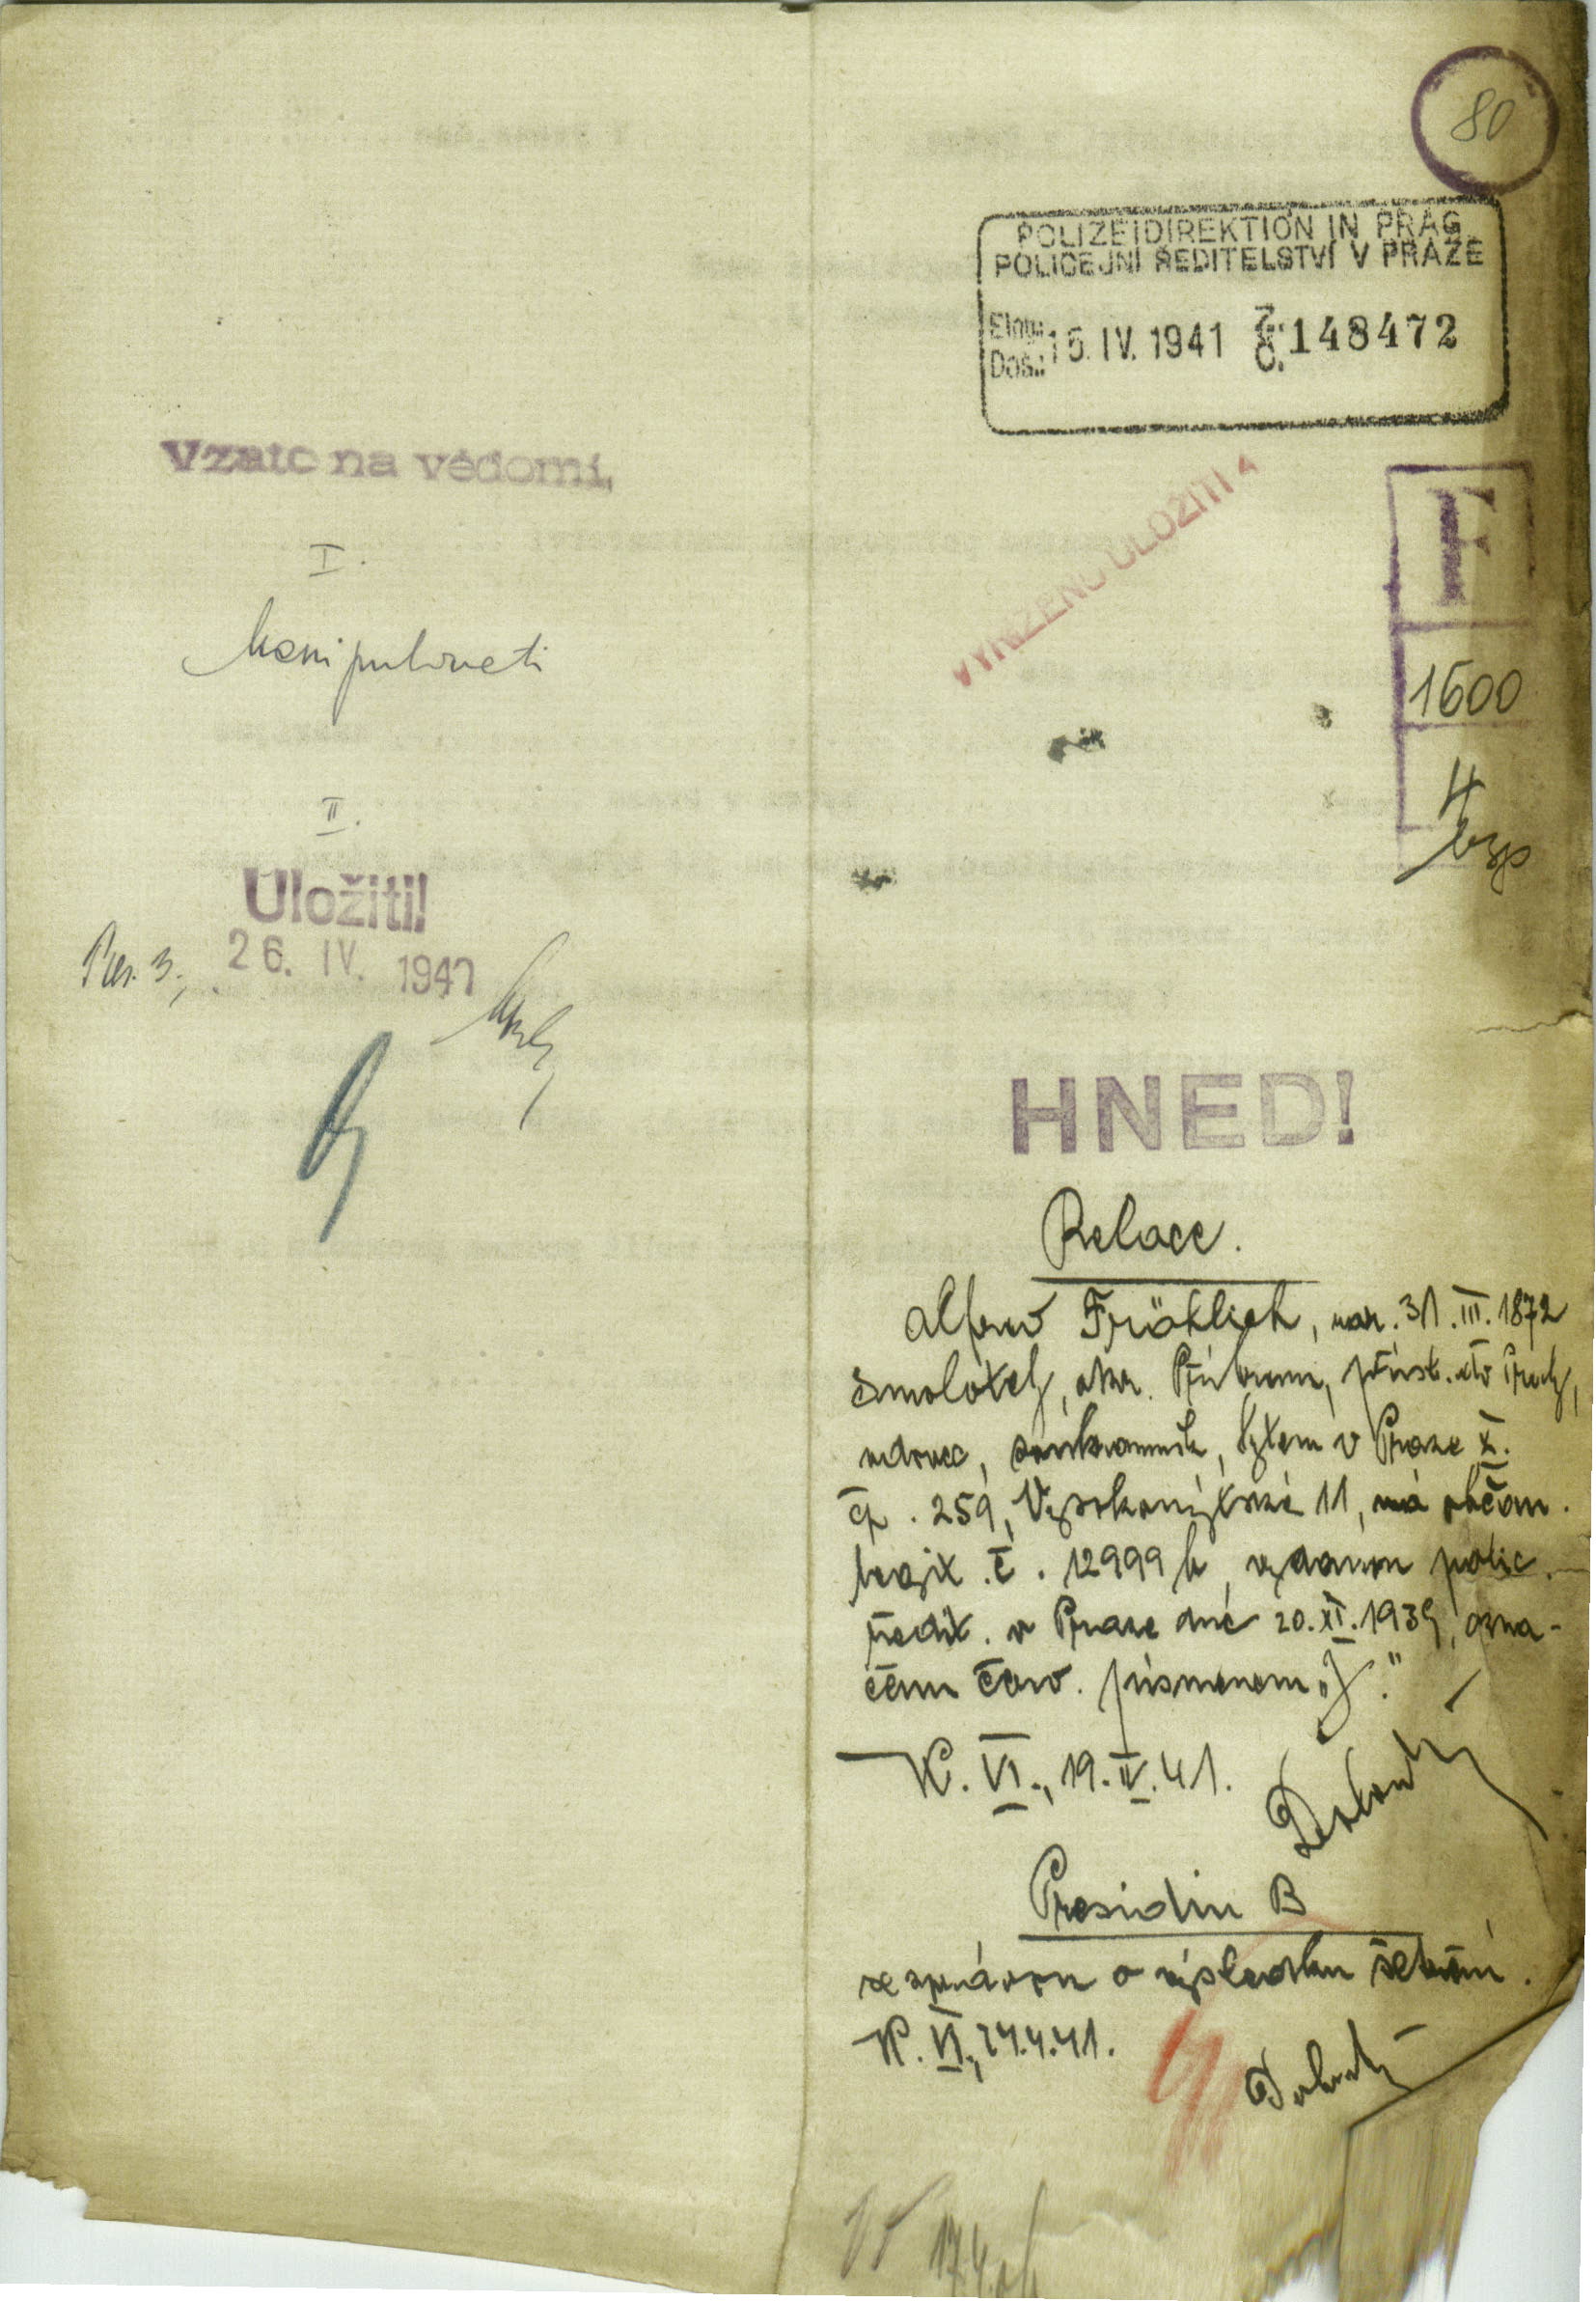 80
POLIZEIDIREKTION IN PRAG
POLICEJNÍ ŘEDITELSTVÍ V PRAZE
Eing:
Doš.: 15. IV. 1941 Z: Č. 148472
Vzato na vědomí,
VYŘÍZENO ULOŽITI
F
I.
Manipulovati
1600
4
II.
Uložiti!
26. IV. 1941
HNED!
Relace.
Alfred Fröhlich, nar. 31. III. 1872
Smolotely, okr. Příbram, přísl. do
vdovec, soukromník, bytem v Praze X.
čp. 259, Vysokomýtská 11, má občan.
legit. č. 12999 b, vydanou polic.
ředit. v Praze dne 20. XI. 1939, ozna-
čenu červ. písmenem „J."
K. VI., 19. IV. 41.
Presidiu B
se zprávou o výsledku šetření.
K. VI., 24.4.41.